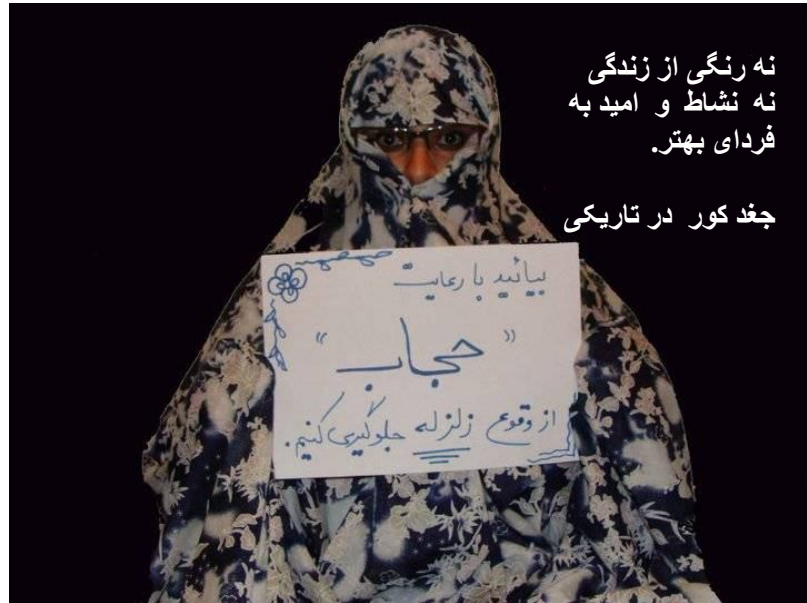 نه رنگی از زندگی
نه نشاط و امید به
فردای بهتر.
جغد کور در تاریکی
بیائید با رعایت
"حجاب"
از وقوع زلزله جلوگیری کنیم.